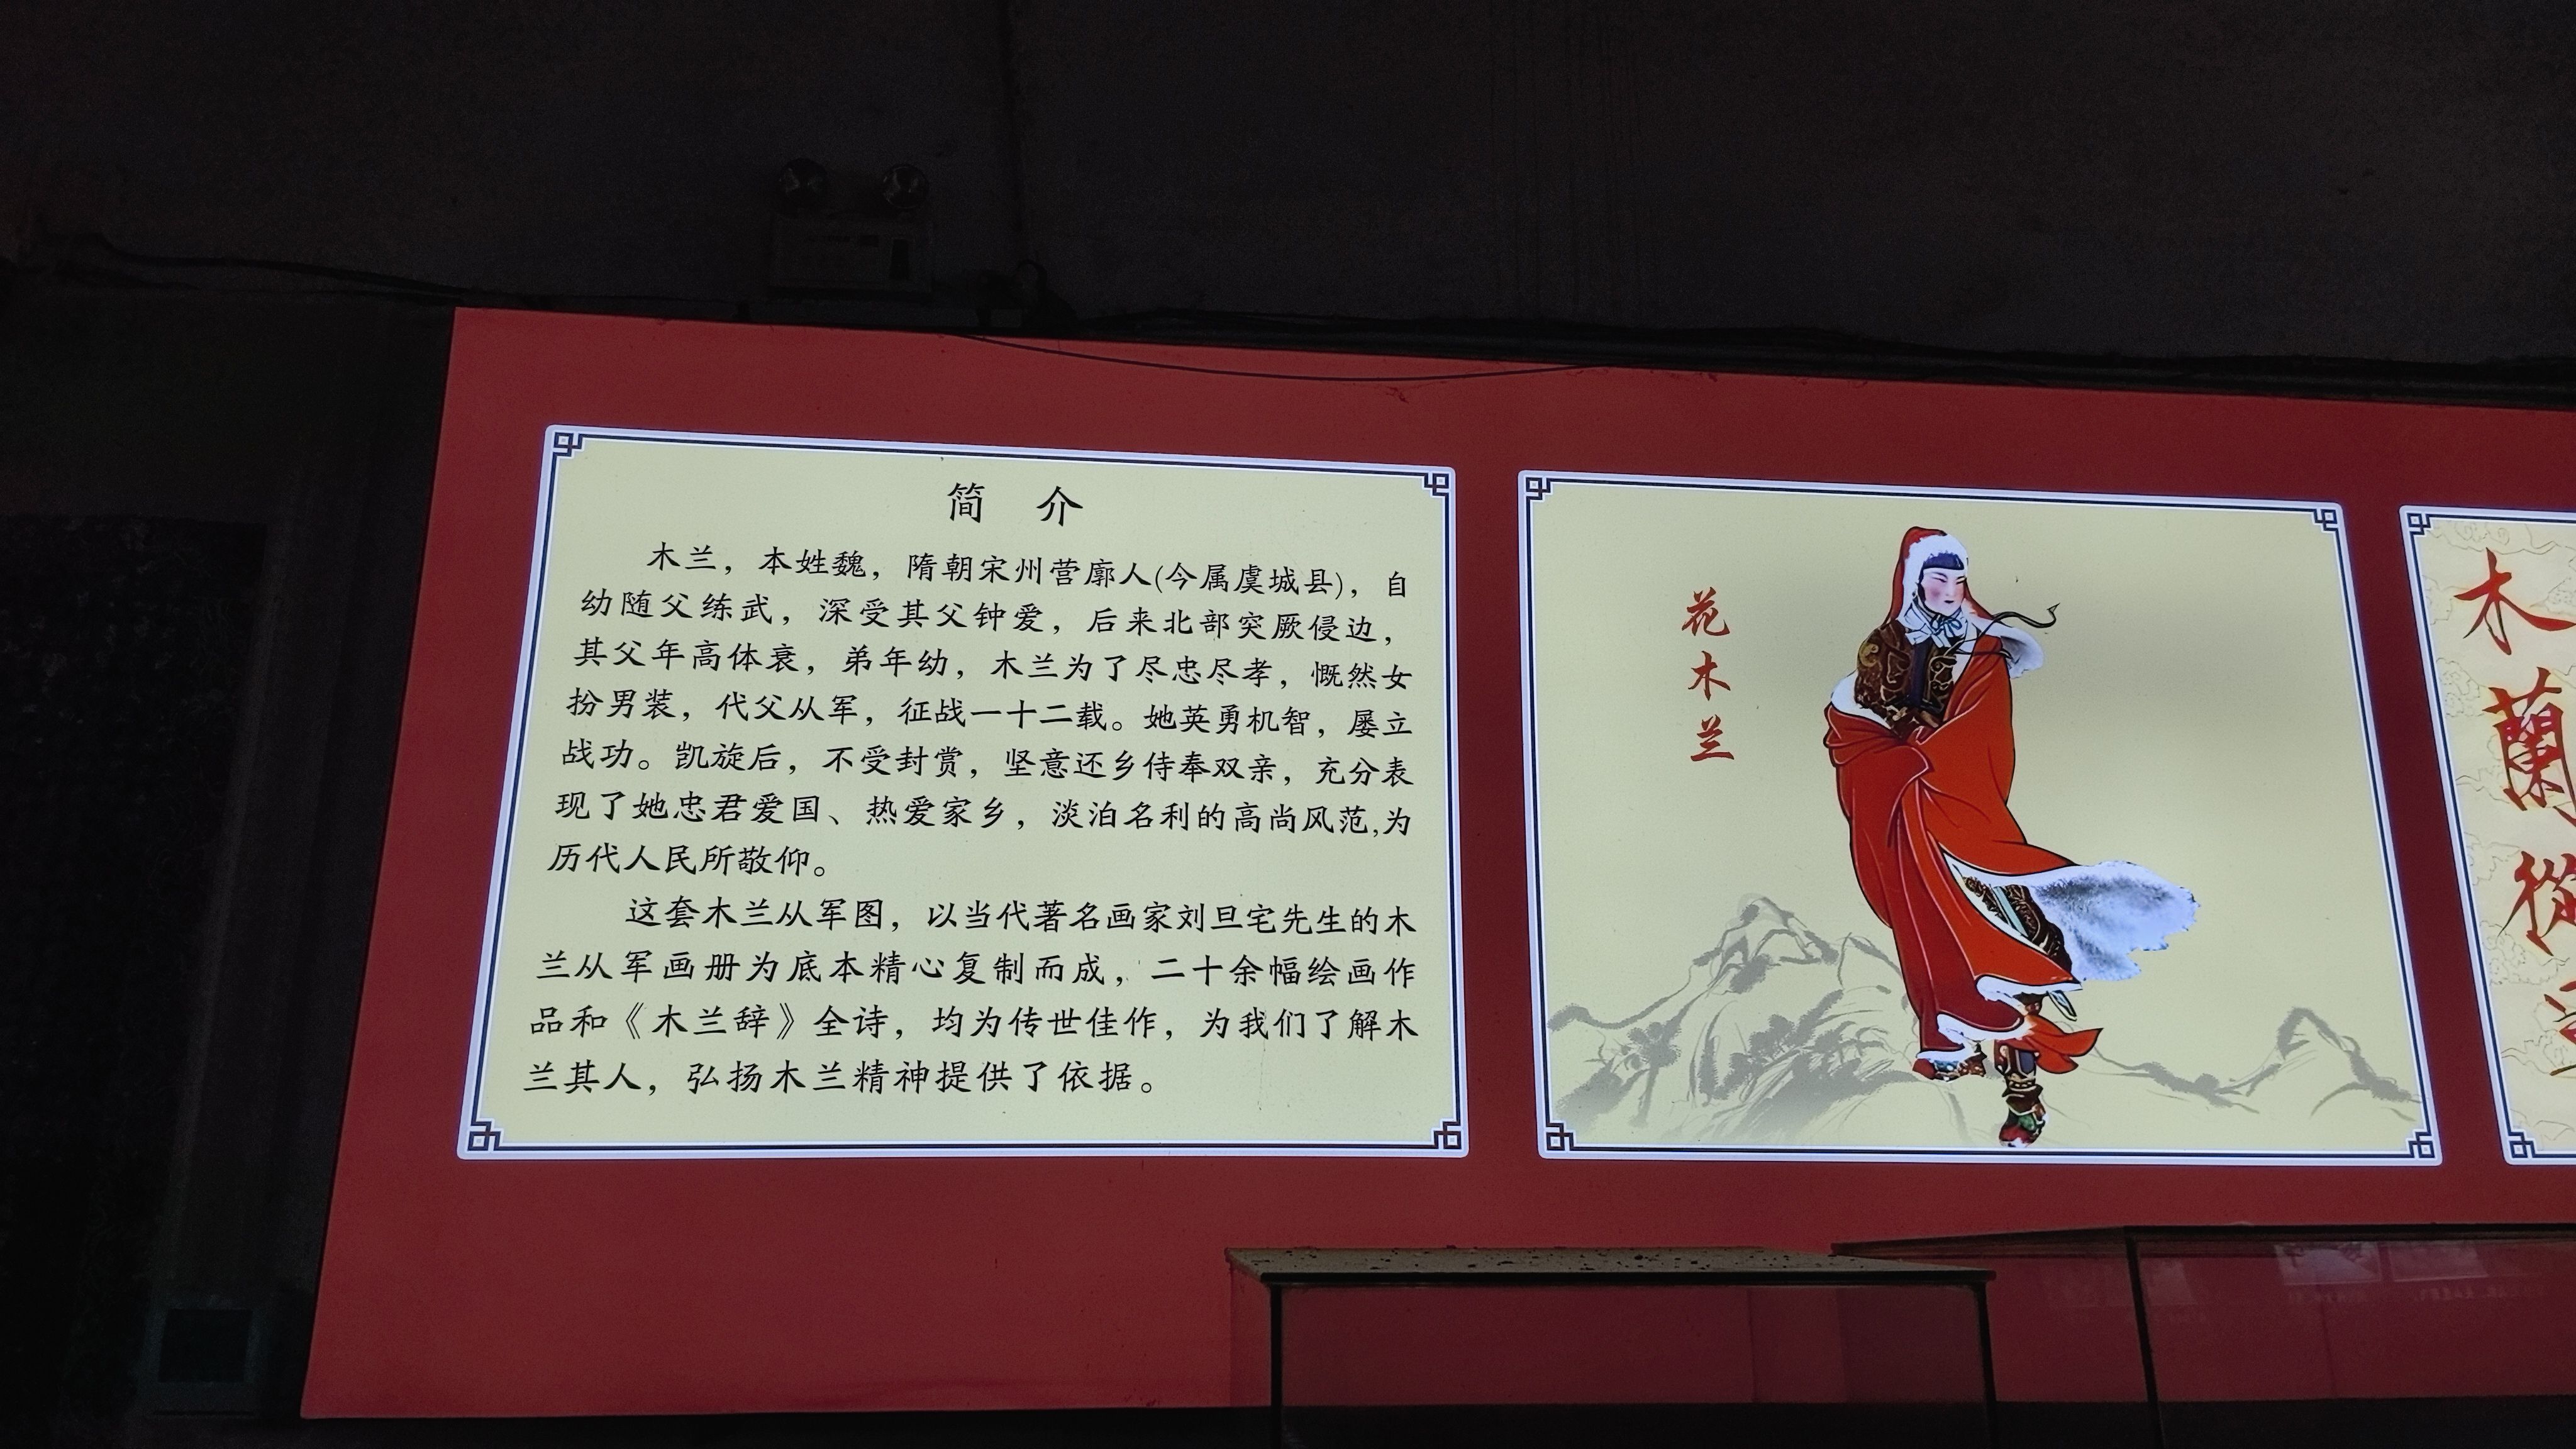 简 介
木兰，本姓魏，隋朝宋州营廓人(今属虞城县)，自
幼随父练武，深受其父钟爱，后来北部突厥侵边，
其父年高体衰，弟年幼，木兰为了尽忠尽孝，慨然女
扮男装，代父从军，征战一十二载。她英勇机智，屡立
战功。凯旋后，不受封赏，坚意还乡侍奉双亲，充分表
现了她忠君爱国、热爱家乡，淡泊名利的高尚风范,为
历代人民所敬仰。
这套木兰从军图，以当代著名画家刘旦宅先生的木
兰从军画册为底本精心复制而成，二十余幅绘画作
品和《木兰辞》全诗，均为传世佳作，为我们了解木
兰其人，弘扬木兰精神提供了依据。
花
木
兰
木
蘭
從